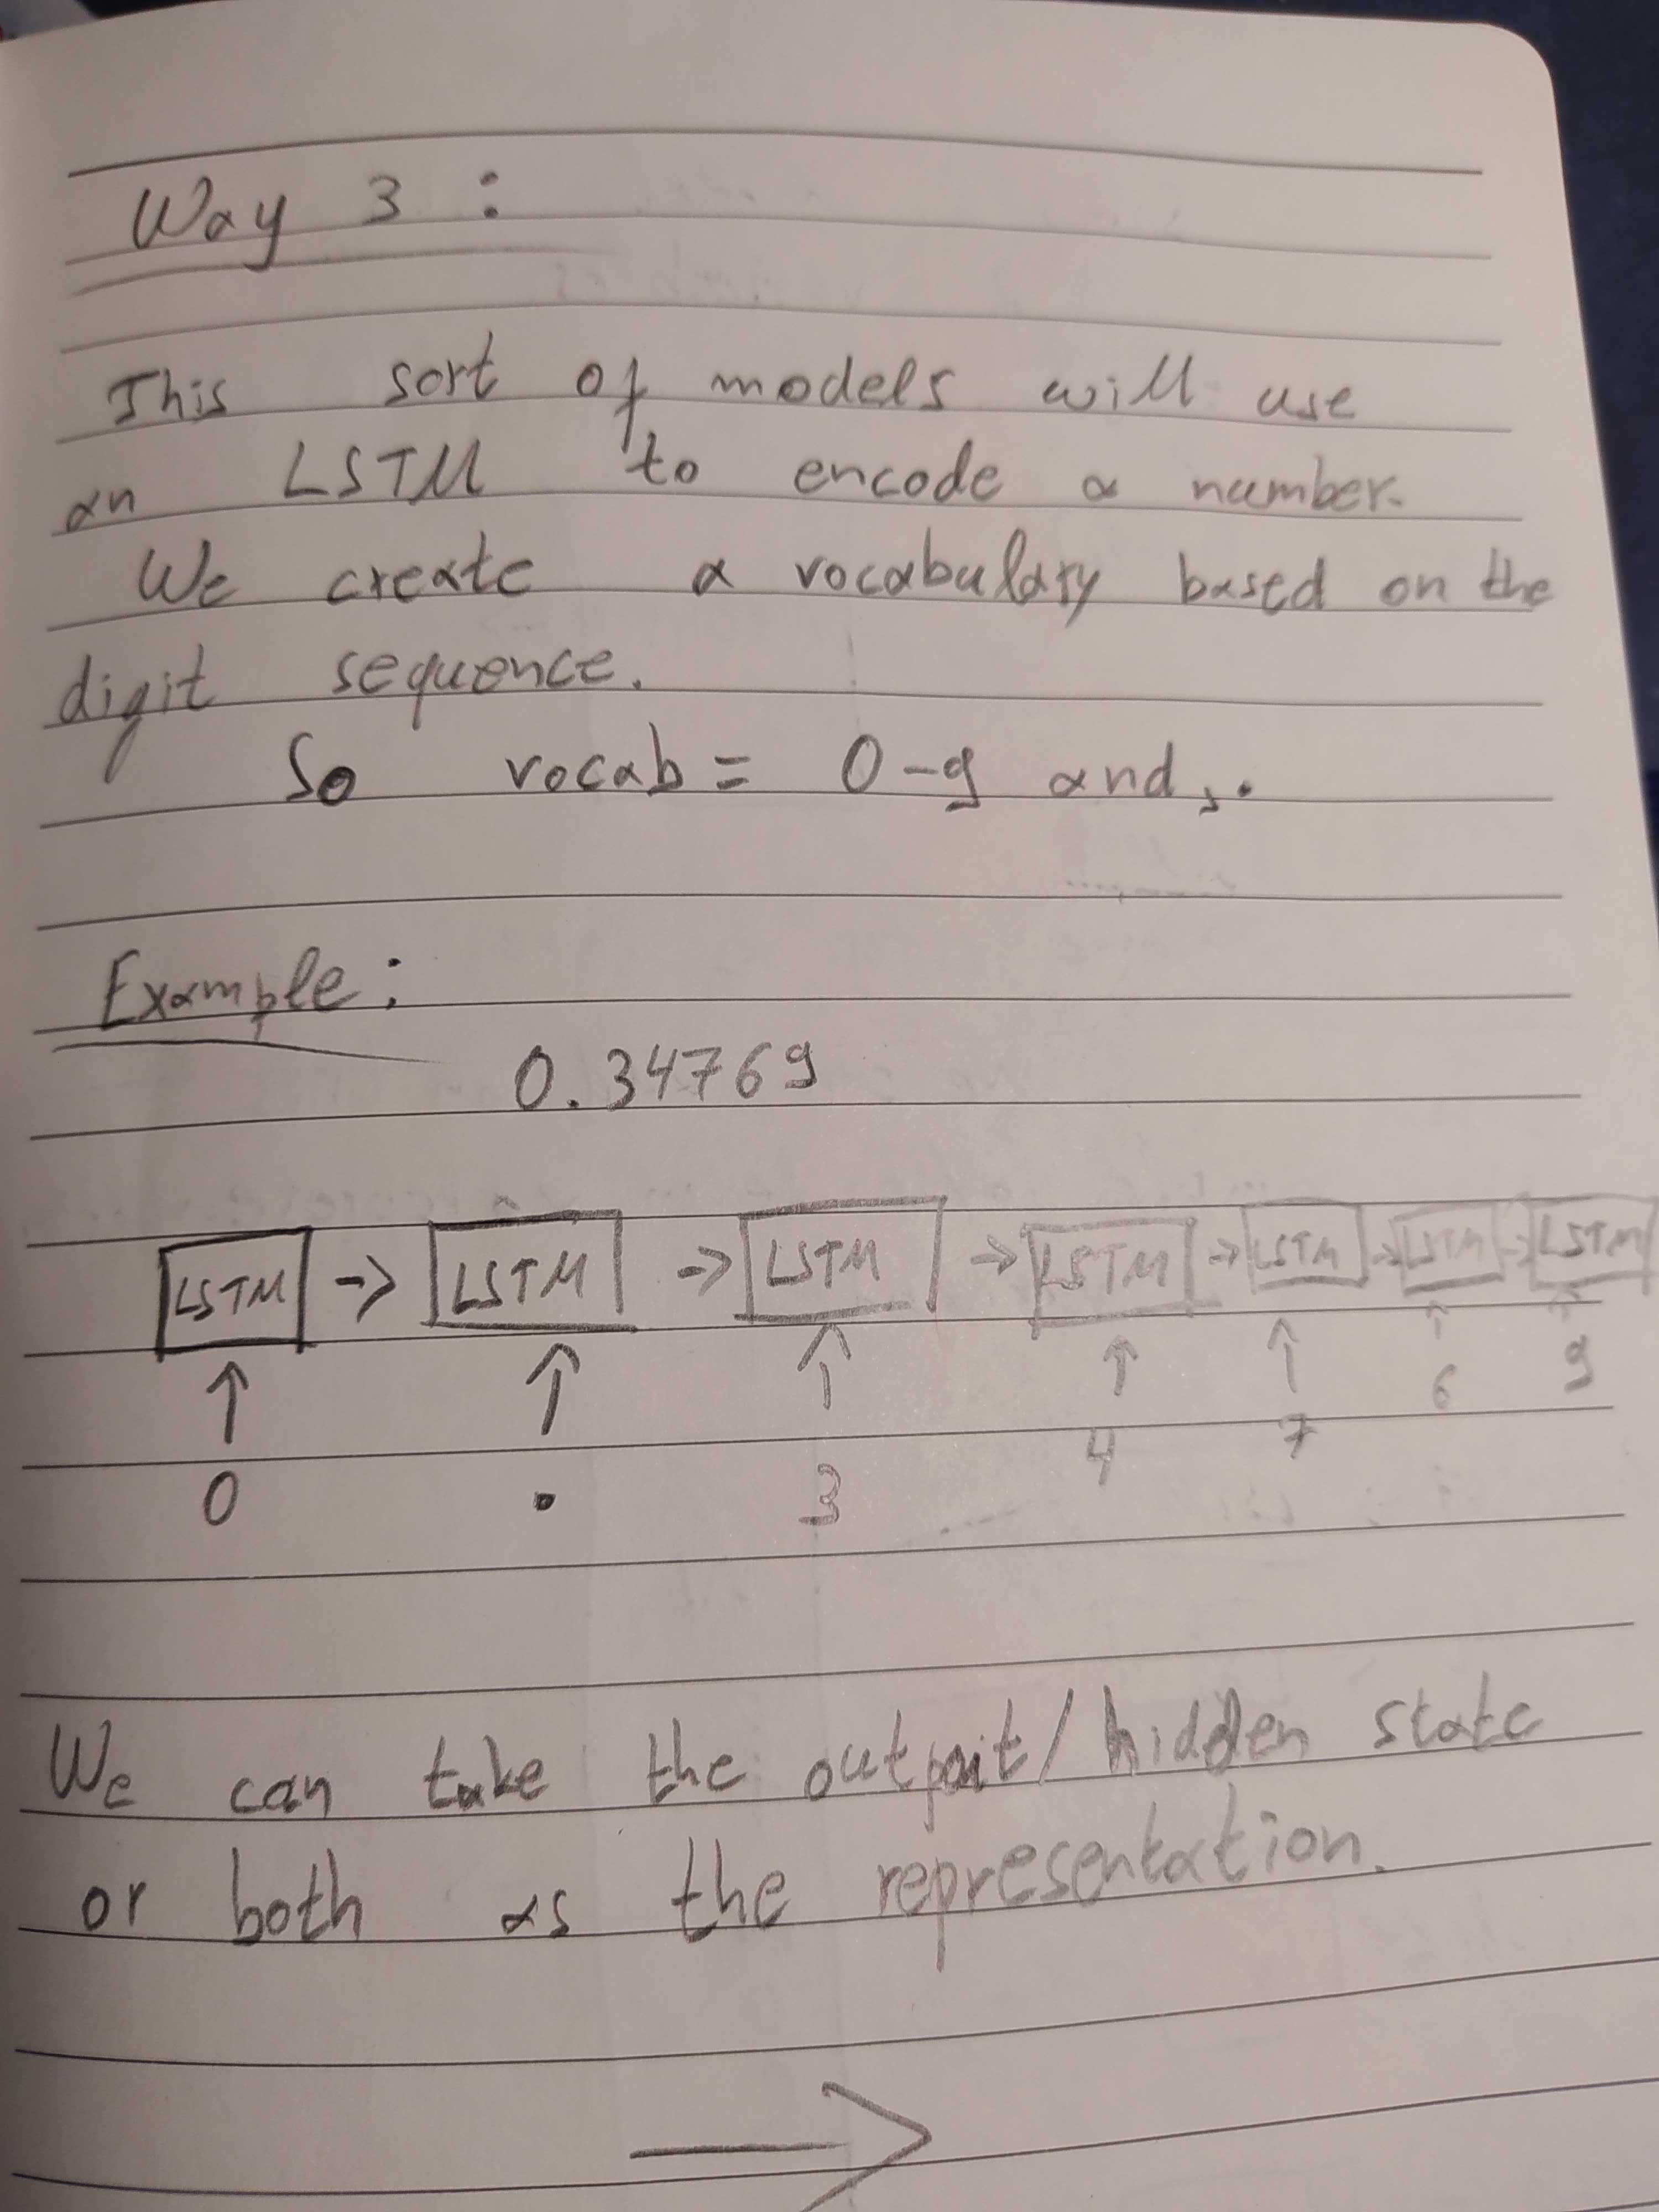 Way 3 :
This sort of models will use
an LSTM to encode a number.
We create a vocabulary based on the
digit sequence.
So vocab = 0-9 and , .
Example :
0.34769
LSTM → LSTM → LSTM → LSTM → LSTM → LSTM → LSTM
↑ ↑ ↑ ↑ ↑ ↑ ↑
0 . 3 4 7 6 9
We can take the output / hidden state
or both as the representation.
→